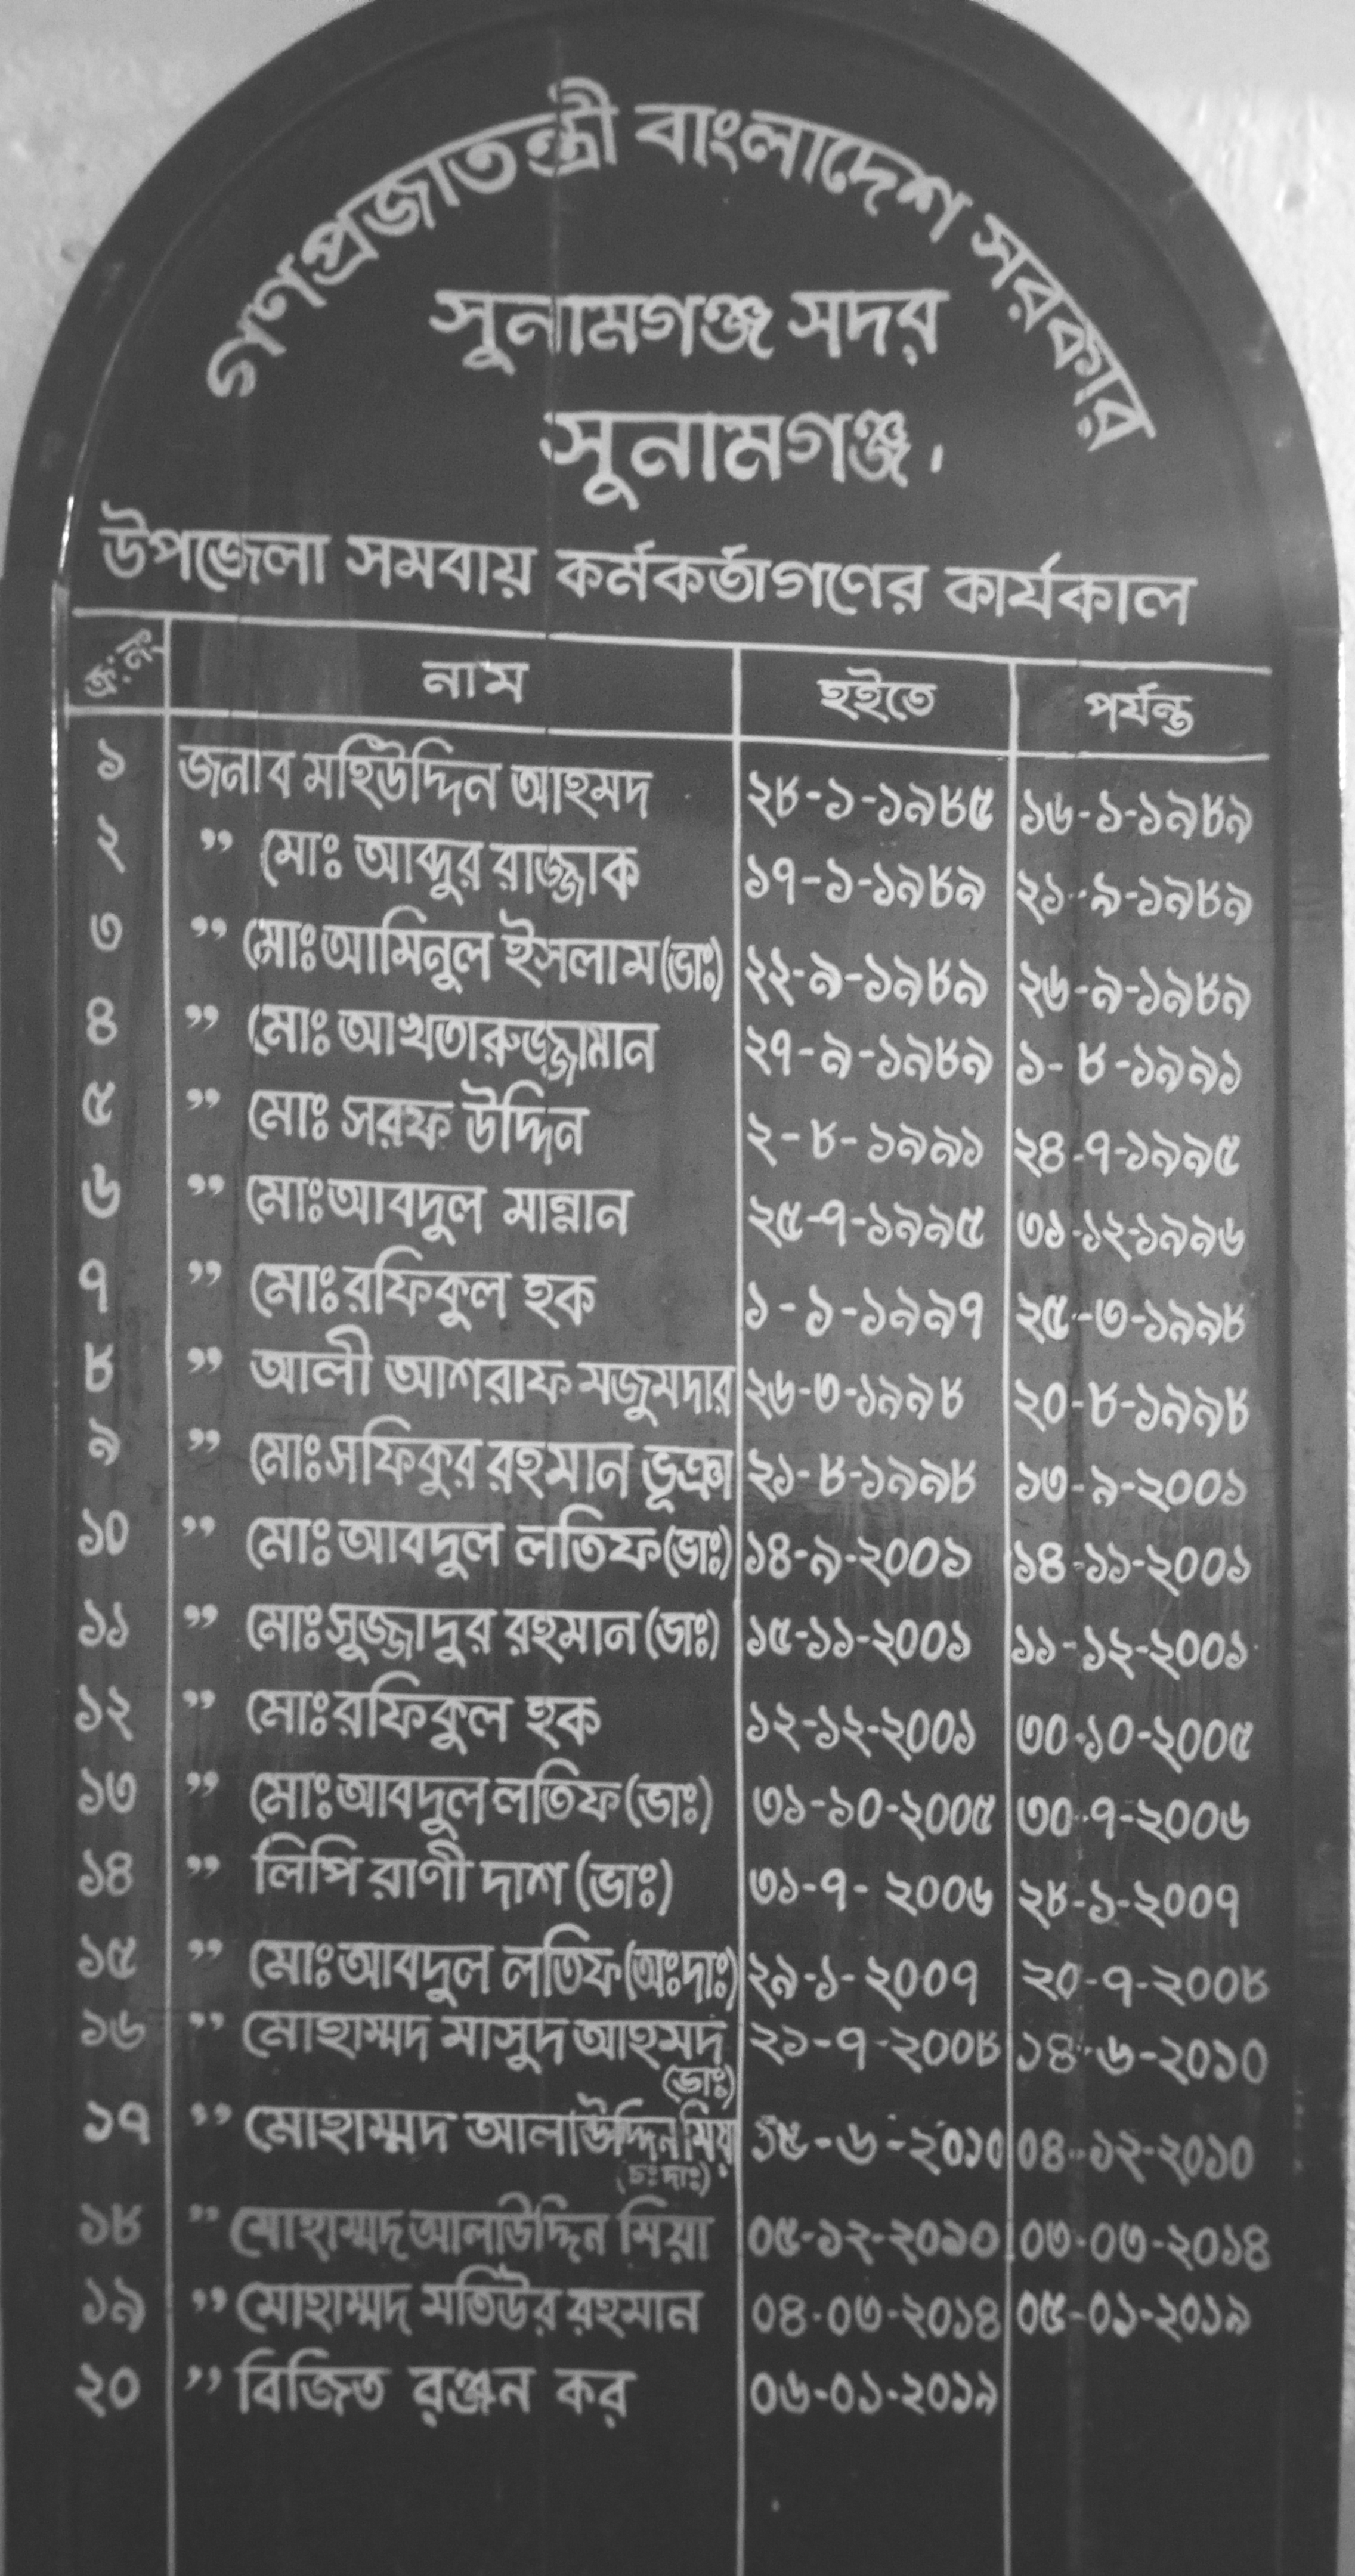 গণপ্রজাতন্ত্রী বাংলাদেশ সরকার
সুনামগঞ্জ সদর
সুনামগঞ্জ।
উপজেলা সমবায় কর্মকর্তাগণের কার্যকাল
ক্র:নং নাম হইতে পর্যন্ত
১ জনাব মহিউদ্দিন আহমদ ২৮-১-১৯৮৫ ১৬-১-১৯৮৯
২ " মোঃ আব্দুর রাজ্জাক ১৭-১-১৯৮৯ ২১-৯-১৯৮৯
৩ " মোঃ আমিনুল ইসলাম (ভাঃ) ২২-৯-১৯৮৯ ২৬-৯-১৯৮৯
৪ " মোঃ আখতারুজ্জামান ২৭-৯-১৯৮৯ ১-৮-১৯৯১
৫ " মোঃ সরফ উদ্দিন ২-৮-১৯৯১ ২৪-৭-১৯৯৫
৬ " মোঃ আবদুল মান্নান ২৫-৭-১৯৯৫ ৩১-১২-১৯৯৬
৭ " মোঃ রফিকুল হক ১-১-১৯৯৭ ২৫-৩-১৯৯৮
৮ " আলী আশরাফ মজুমদার ২৬-৩-১৯৯৮ ২০-৮-১৯৯৮
৯ " মোঃ সফিকুর রহমান ভূঞা ২১-৮-১৯৯৮ ১৩-৯-২০০১
১০ " মোঃ আবদুল লতিফ (ভাঃ) ১৪-৯-২০০১ ১৪-১১-২০০১
১১ " মোঃ সুজ্জাদুর রহমান (ভাঃ) ১৫-১১-২০০১ ১১-১২-২০০১
১২ " মোঃ রফিকুল হক ১২-১২-২০০১ ৩০-১০-২০০৫
১৩ " মোঃ আবদুল লতিফ (ভাঃ) ৩১-১০-২০০৫ ৩০-৭-২০০৬
১৪ " লিপি রাণী দাশ (ভাঃ) ৩১-৭-২০০৬ ২৮-১-২০০৭
১৫ " মোঃ আবদুল লতিফ (অঃদাঃ) ২৯-১-২০০৭ ২০-৭-২০০৮
১৬ " মোহাম্মদ মাসুদ আহমদ ২১-৭-২০০৮ ১৪-৬-২০১০
(ভাঃ)
১৭ " মোহাম্মদ আলাউদ্দিন মিয়া ১৫-৬-২০১০ ০৪-১২-২০১০
(চঃদাঃ)
১৮ " মোহাম্মদ আলাউদ্দিন মিয়া ০৫-১২-২০১০ ০৩-০৩-২০১৪
১৯ " মোহাম্মদ মতিউর রহমান ০৪-০৩-২০১৪ ০৫-০১-২০১৯
২০ " বিজিত রঞ্জন কর ০৬-০১-২০১৯